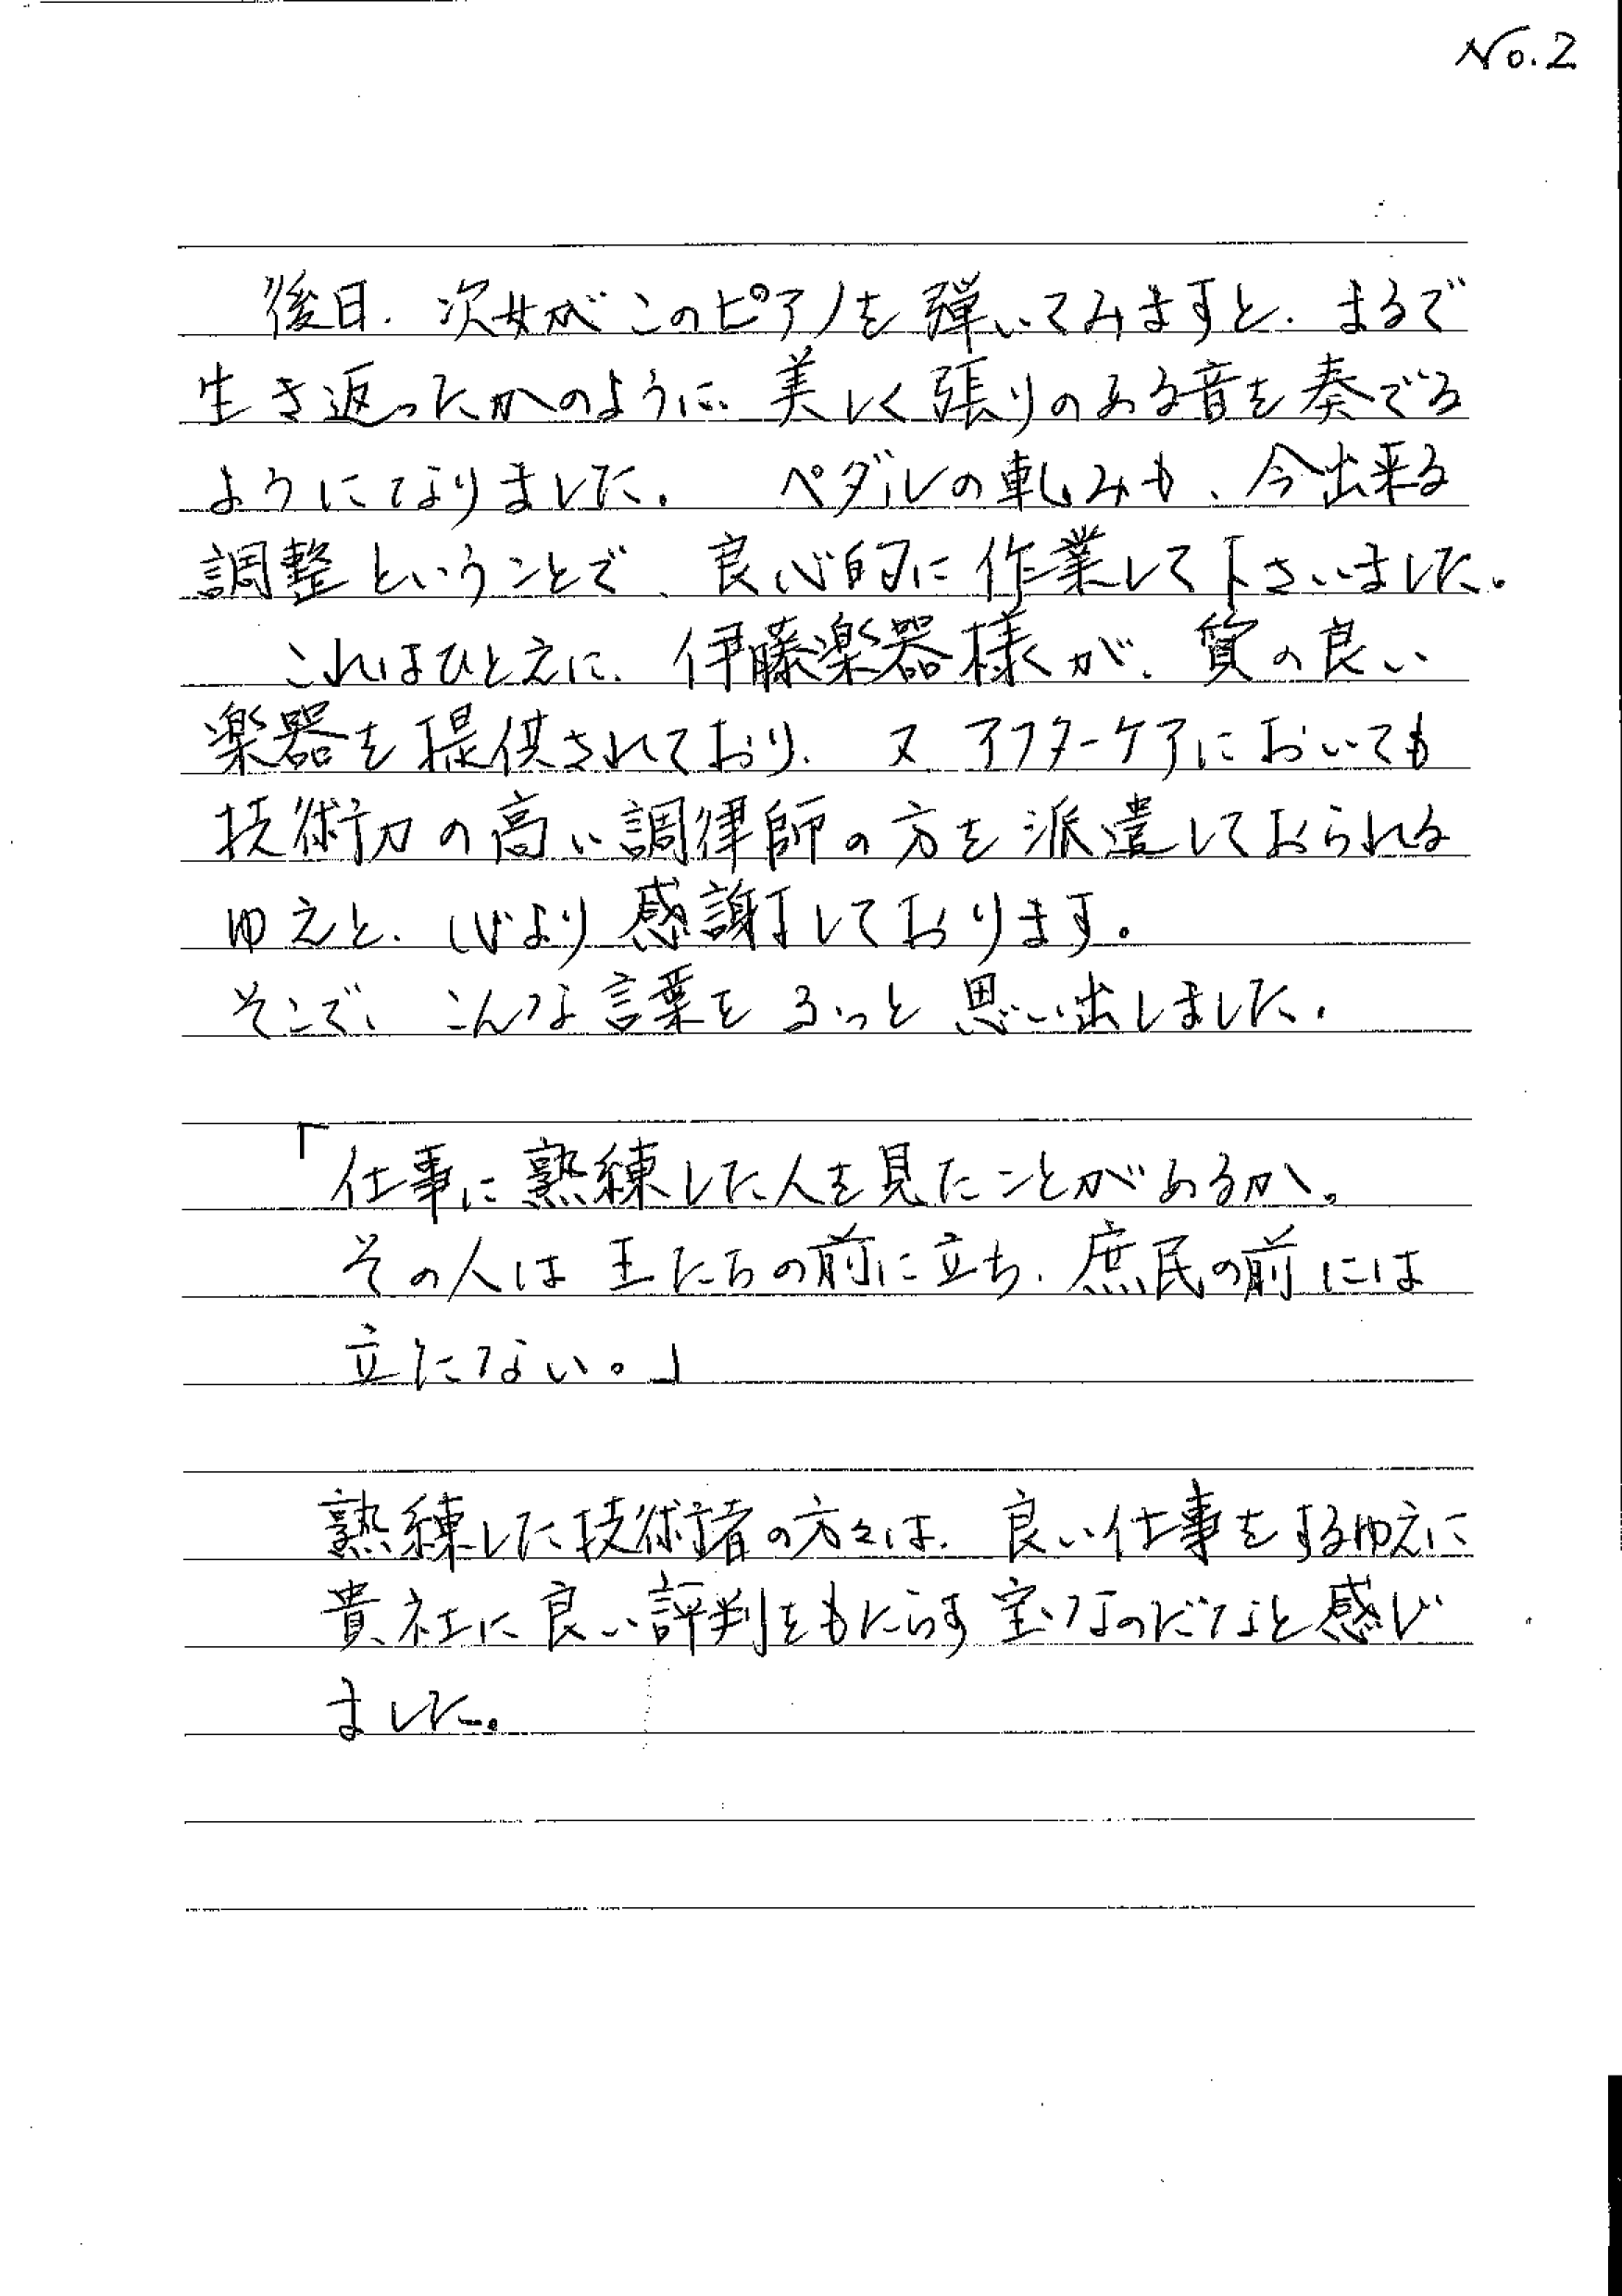 No.2
後日、次女がこのピアノを弾いてみますと、まるで
生き返ったかのように、美しく張りのある音を奏でる
ようになりました。 ペダルの軋みも、今出来る
調整ということで、良心的に作業して下さいました。
これはひとえに、伊藤楽器様が、質の良い
楽器を提供されており、又、アフターケアにおいても
技術力の高い調律師の方を派遣しておられる
ゆえと、心より感謝しております。
そこで、こんな言葉をふっと思い出しました。
「仕事に熟練した人を見たことがあるか。
その人は王たちの前に立ち、庶民の前には
立たない。」
熟練した技術者の方々は、良い仕事をするゆえに
貴社に良い評判をもたらす宝なのだなと感じ
ました。